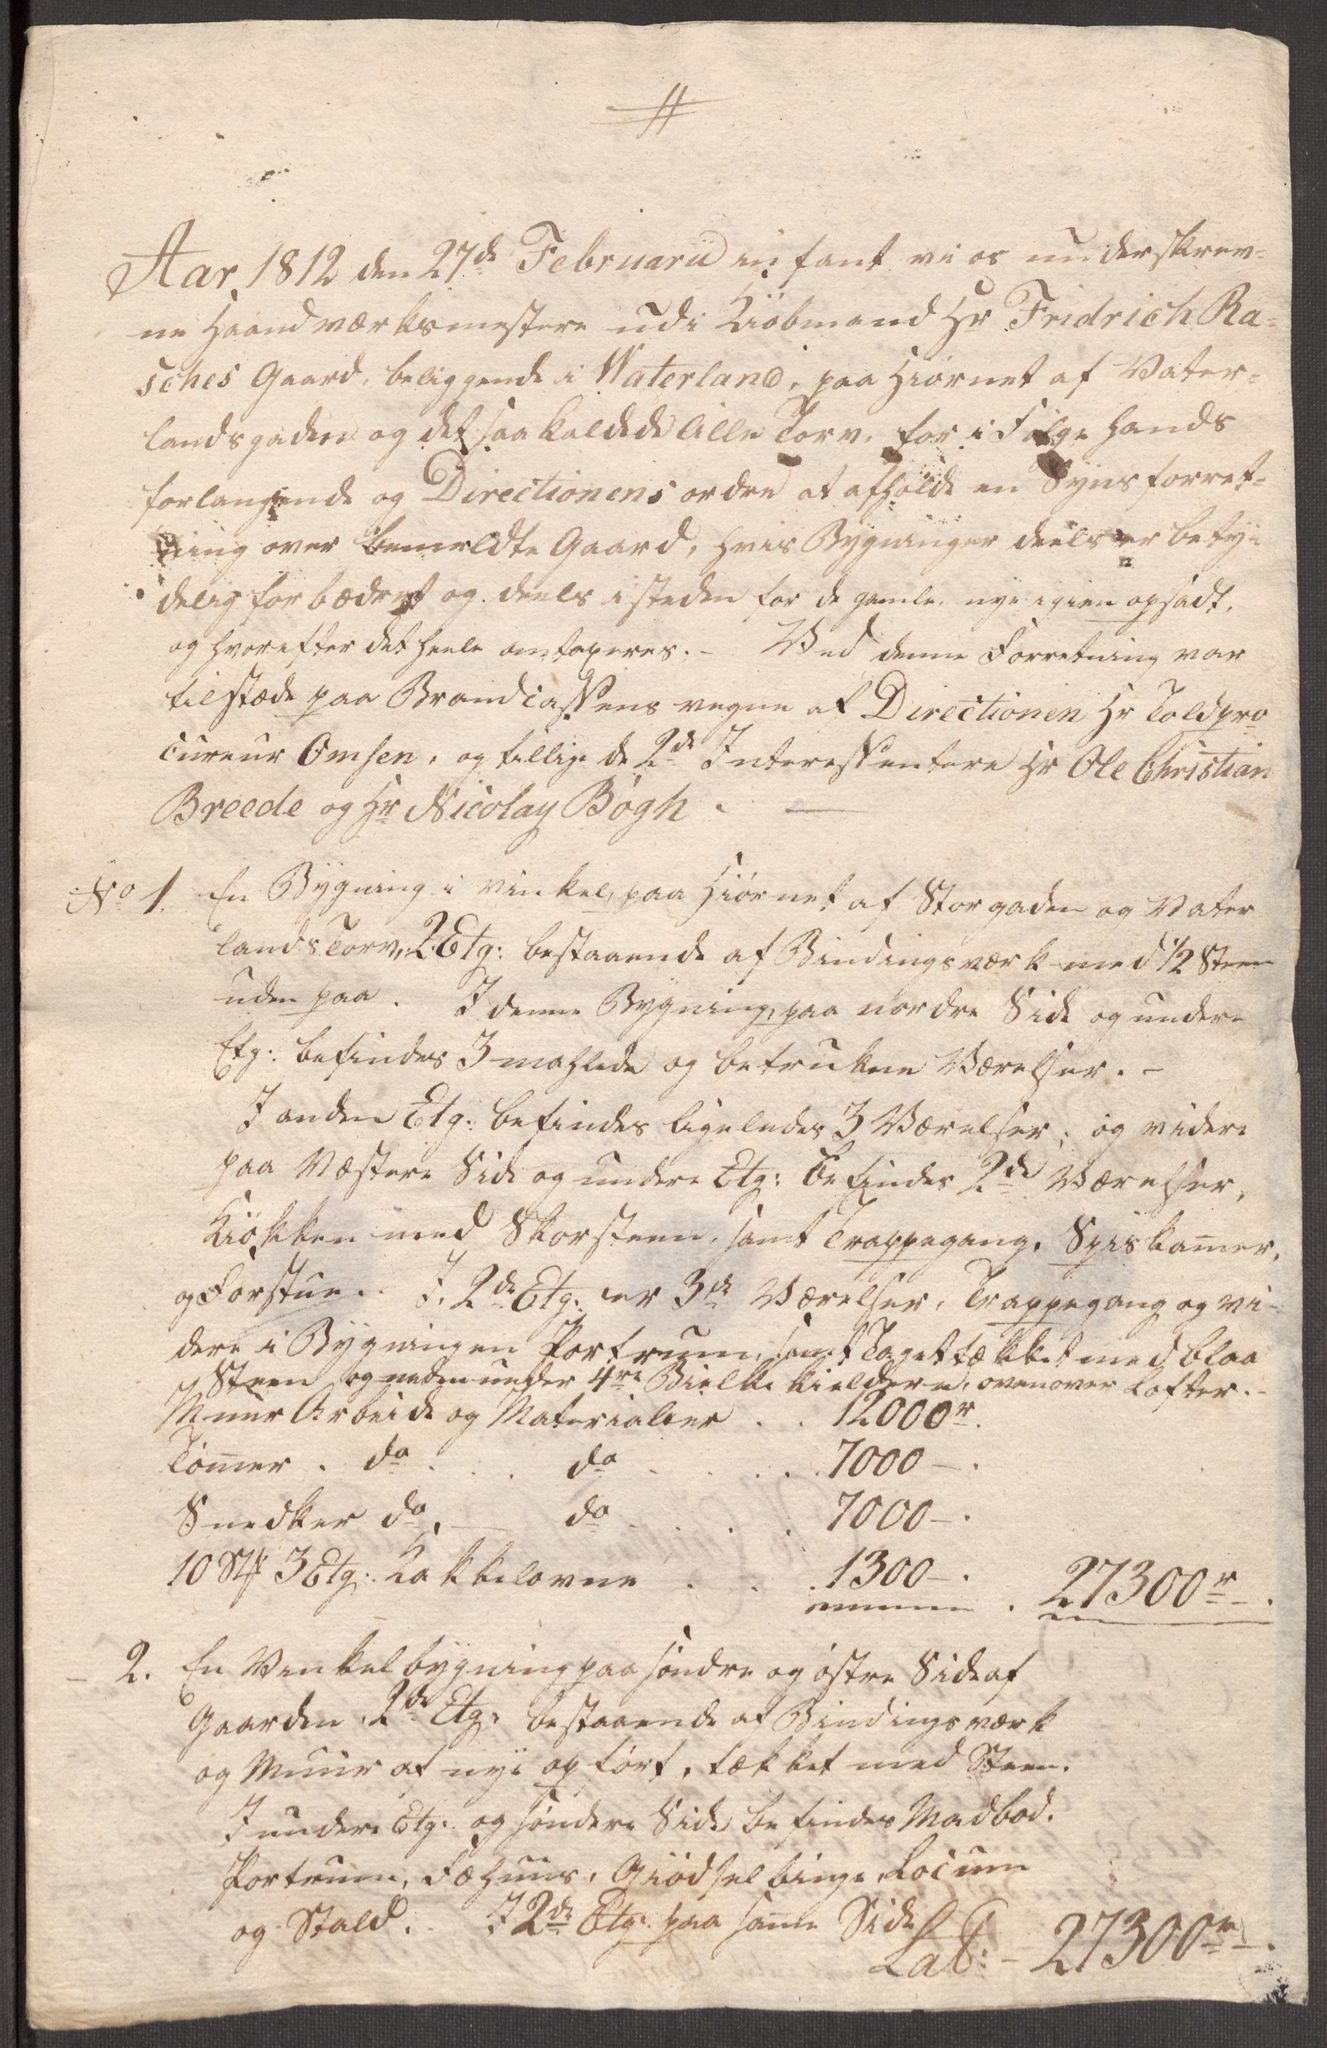 Aar 1812 den 27de Februarii infant vi os underskrev-
ne Haandværksmestere udi Kiöbmand Hr Fridrich Ra-
sches Gaard, beliggende i Waterland, paa Hiörnet af Vater-
landsgaden og det saa kaldede lille Torv, for i Fölge hands
forlangende og Directionens ordre at afholde en Syns forret-
ning over bemeldte Gaard, hvis Bygninger deels er bety-
delig forbædret og deels i steden for de gamle, nye igien opsadt,
og hvorefter det heele omtaxeres. - Ved denne Forretning var
tilstæde paa Brandcassens vegne af Directionen Hr Toldpro
cureur Omsen, og tillige de 2de Interessentere Hr Ole Christian
Breede og Hr Nicolay Bögh. —
No 1. En Bygning i vinkel, paa Hiörnet af Storgaden og Vater
lands Torv, 2 Etg: bestaaende af Bindingsværk med 1/2 Steen
uden paa. I denne Bygning, paa nordre Side og undere
Etg: befindes 3 mahlede og betrukne Værelser. -
I anden Etg: befindes ligeledes 3 Værelser, og videre
paa Væstere Side og undere Etg: befindes 2de Værelser,
Kiökken med Skorsteen, samt Trappegang, Spiskamer,
og Forstue. I. 2de Etg: er 3de Værelser, Trappegang og vi-
dere i Bygningen Portrum, samt Taget tækket med blaa
Steen, og neden under 4re Bielke kieldere, ovenover Lofter. -
Muur Arbeide og Materialier . . 12000r.
Tömer . do . . . do . . . . 7000 - .
Snedker do. — do . . . . 7000 - .
10 Stk 3 Etg: Kakkelovne . . . 1300 - . 27300r - .
- 2. En Vinkelbygning paa söndre og östre Side af
Gaarden, 2de Etg: bestaaende af Bindingsværk
og Muur af nye opfört, tækket med Steen.
I undere Etg. og söndere Side befindes Madbod,
Portrum, Fæhuus, Giödselbinge, Locum
og Stald. I 2de Etg: paa same Side
Lat: - 27300r - .